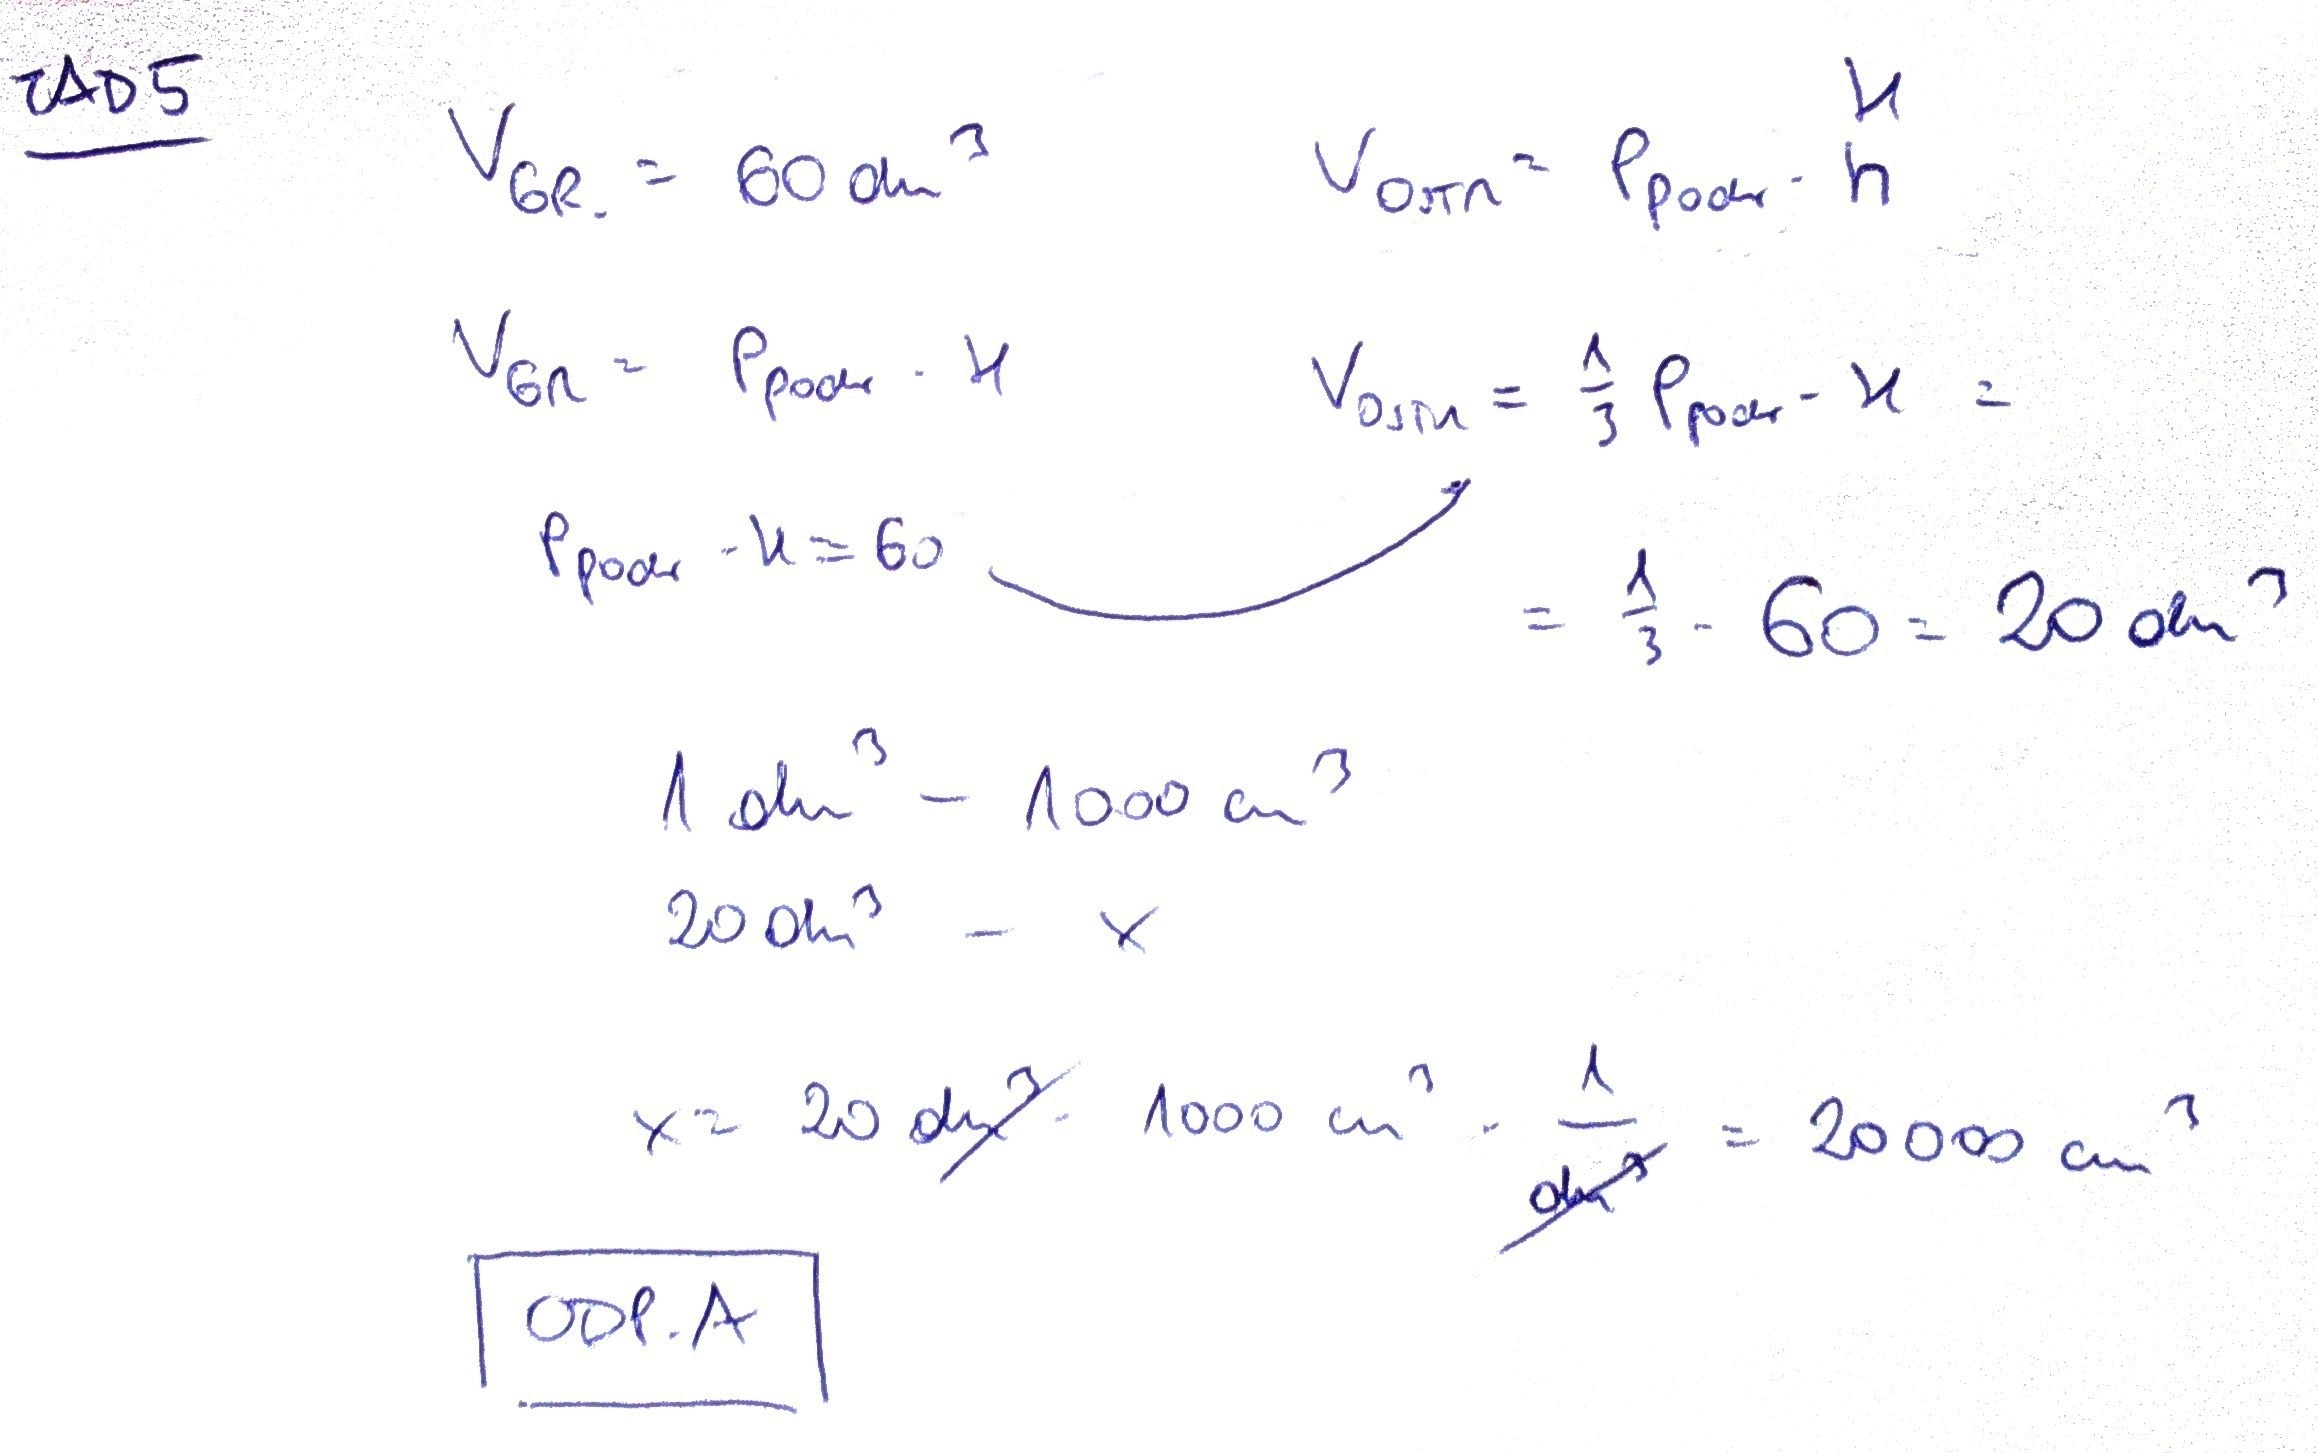 ZAD 5
V_GR. = 60 dm³
V_OSTR = P_podst · h
H
V_GR = P_podst · H
V_OSTR = 1/3 P_podst · H =
P_podst · H = 60
= 1/3 · 60 = 20 dm³
1 dm³ – 1000 cm³
20 dm³ – x
x = 20 dm³ · 1000 cm³ · 1/dm³ = 20000 cm³
ODP. A